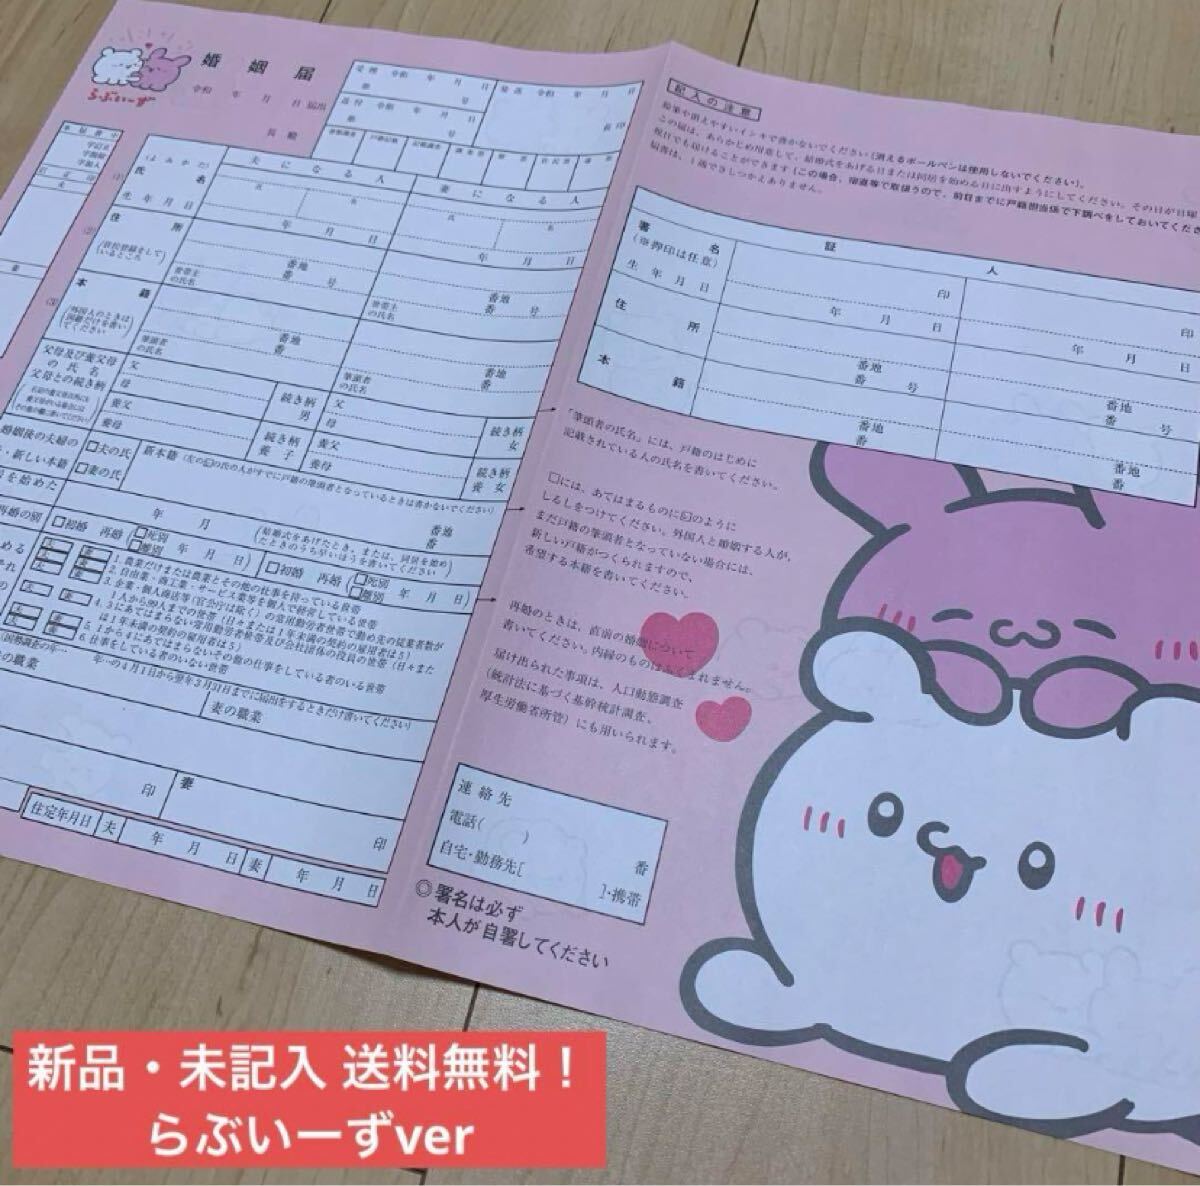 らぶいーず
婚姻届
令和 年 月 日 届出
長 殿
受理 令和 年 月 日
第 号
送付 令和 年 月 日
第 号
発送 令和 年 月 日
長印
書類調査 戸籍記載 記載調査 調査票 附票 住民票 通知
夫になる人
妻になる人
(よみかた)
氏名
氏 名
氏 名
生年月日
年 月 日
年 月 日
住所
(住民登録をしているところ)
番地
番 号
番地
番 号
世帯主の氏名
世帯主の氏名
(3)
本籍
(外国人のときは国籍だけを書いてください)
番地
番
番地
番
筆頭者の氏名
筆頭者の氏名
父母及び養父母の氏名
父母との続き柄
父
母
続き柄
男
父
母
続き柄
女
養父
養母
続き柄
養子
養父
養母
続き柄
養女
婚姻後の夫婦の
・新しい本籍
□夫の氏
□妻の氏
新本籍(左の☑の氏の人がすでに戸籍の筆頭者となっているときは書かないでください)
番地
番
を始めた
年 月
(結婚式をあげたとき、または、同居を始めたときのうち早いほうを書いてください)
再婚の別
□初婚 再婚(□死別 □離別 年 月 日)
□初婚 再婚(□死別 □離別 年 月 日)
夫 妻 1. 農業だけまたは農業とその他の仕事を持っている世帯
夫 妻 2. 自由業・商工業・サービス業等を個人で経営している世帯
夫 妻 3. 企業・個人商店等(官公庁は除く)の常用勤労者世帯で勤め先の従業者数が1人から99人までの世帯(日々または1年未満の契約の雇用者は5)
夫 妻 4. 3にあてはまらない常用勤労者世帯及び会社団体の役員の世帯(日々または1年未満の契約の雇用者は5)
夫 妻 5. 1から4にあてはまらないその他の仕事をしている者のいる世帯
夫 妻 6. 仕事をしている者のいない世帯
(国勢調査の年…年…の4月1日から翌年3月31日までに届出をするときだけ書いてください)
の職業
妻の職業
印
妻
印
住定年月日
夫 年 月 日
妻 年 月 日
記入の注意
鉛筆や消えやすいインキで書かないでください(消えるボールペンは使用しないでください)。
この届は、あらかじめ用意して、結婚式をあげる日または同居を始める日に出すようにしてください。その日が日曜
祝日でも届けることができます(この場合、宿直等で取扱うので、前日までに戸籍担当係で下調べをしておいてくださ
届書は、1通でさしつかえありません。
証人
署名
(※押印は任意)
印
印
生年月日
年 月 日
年 月 日
住所
番地
番 号
番地
番 号
本籍
番地
番
番地
番
「筆頭者の氏名」には、戸籍のはじめに
記載されている人の氏名を書いてください。
□には、あてはまるものに☑のように
しるしをつけてください。外国人と婚姻する人が、
まだ戸籍の筆頭者となっていない場合には、
新しい戸籍がつくられますので、
希望する本籍を書いてください。
再婚のときは、直前の婚姻について
書いてください。内縁のものはふくまれません。
届け出られた事項は、人口動態調査
(統計法に基づく基幹統計調査、
厚生労働省所管)にも用いられます。
連絡先
電話( )
番
自宅・勤務先[ ]・携帯
◎署名は必ず
本人が自署してください
新品・未記入 送料無料！
らぶいーずver